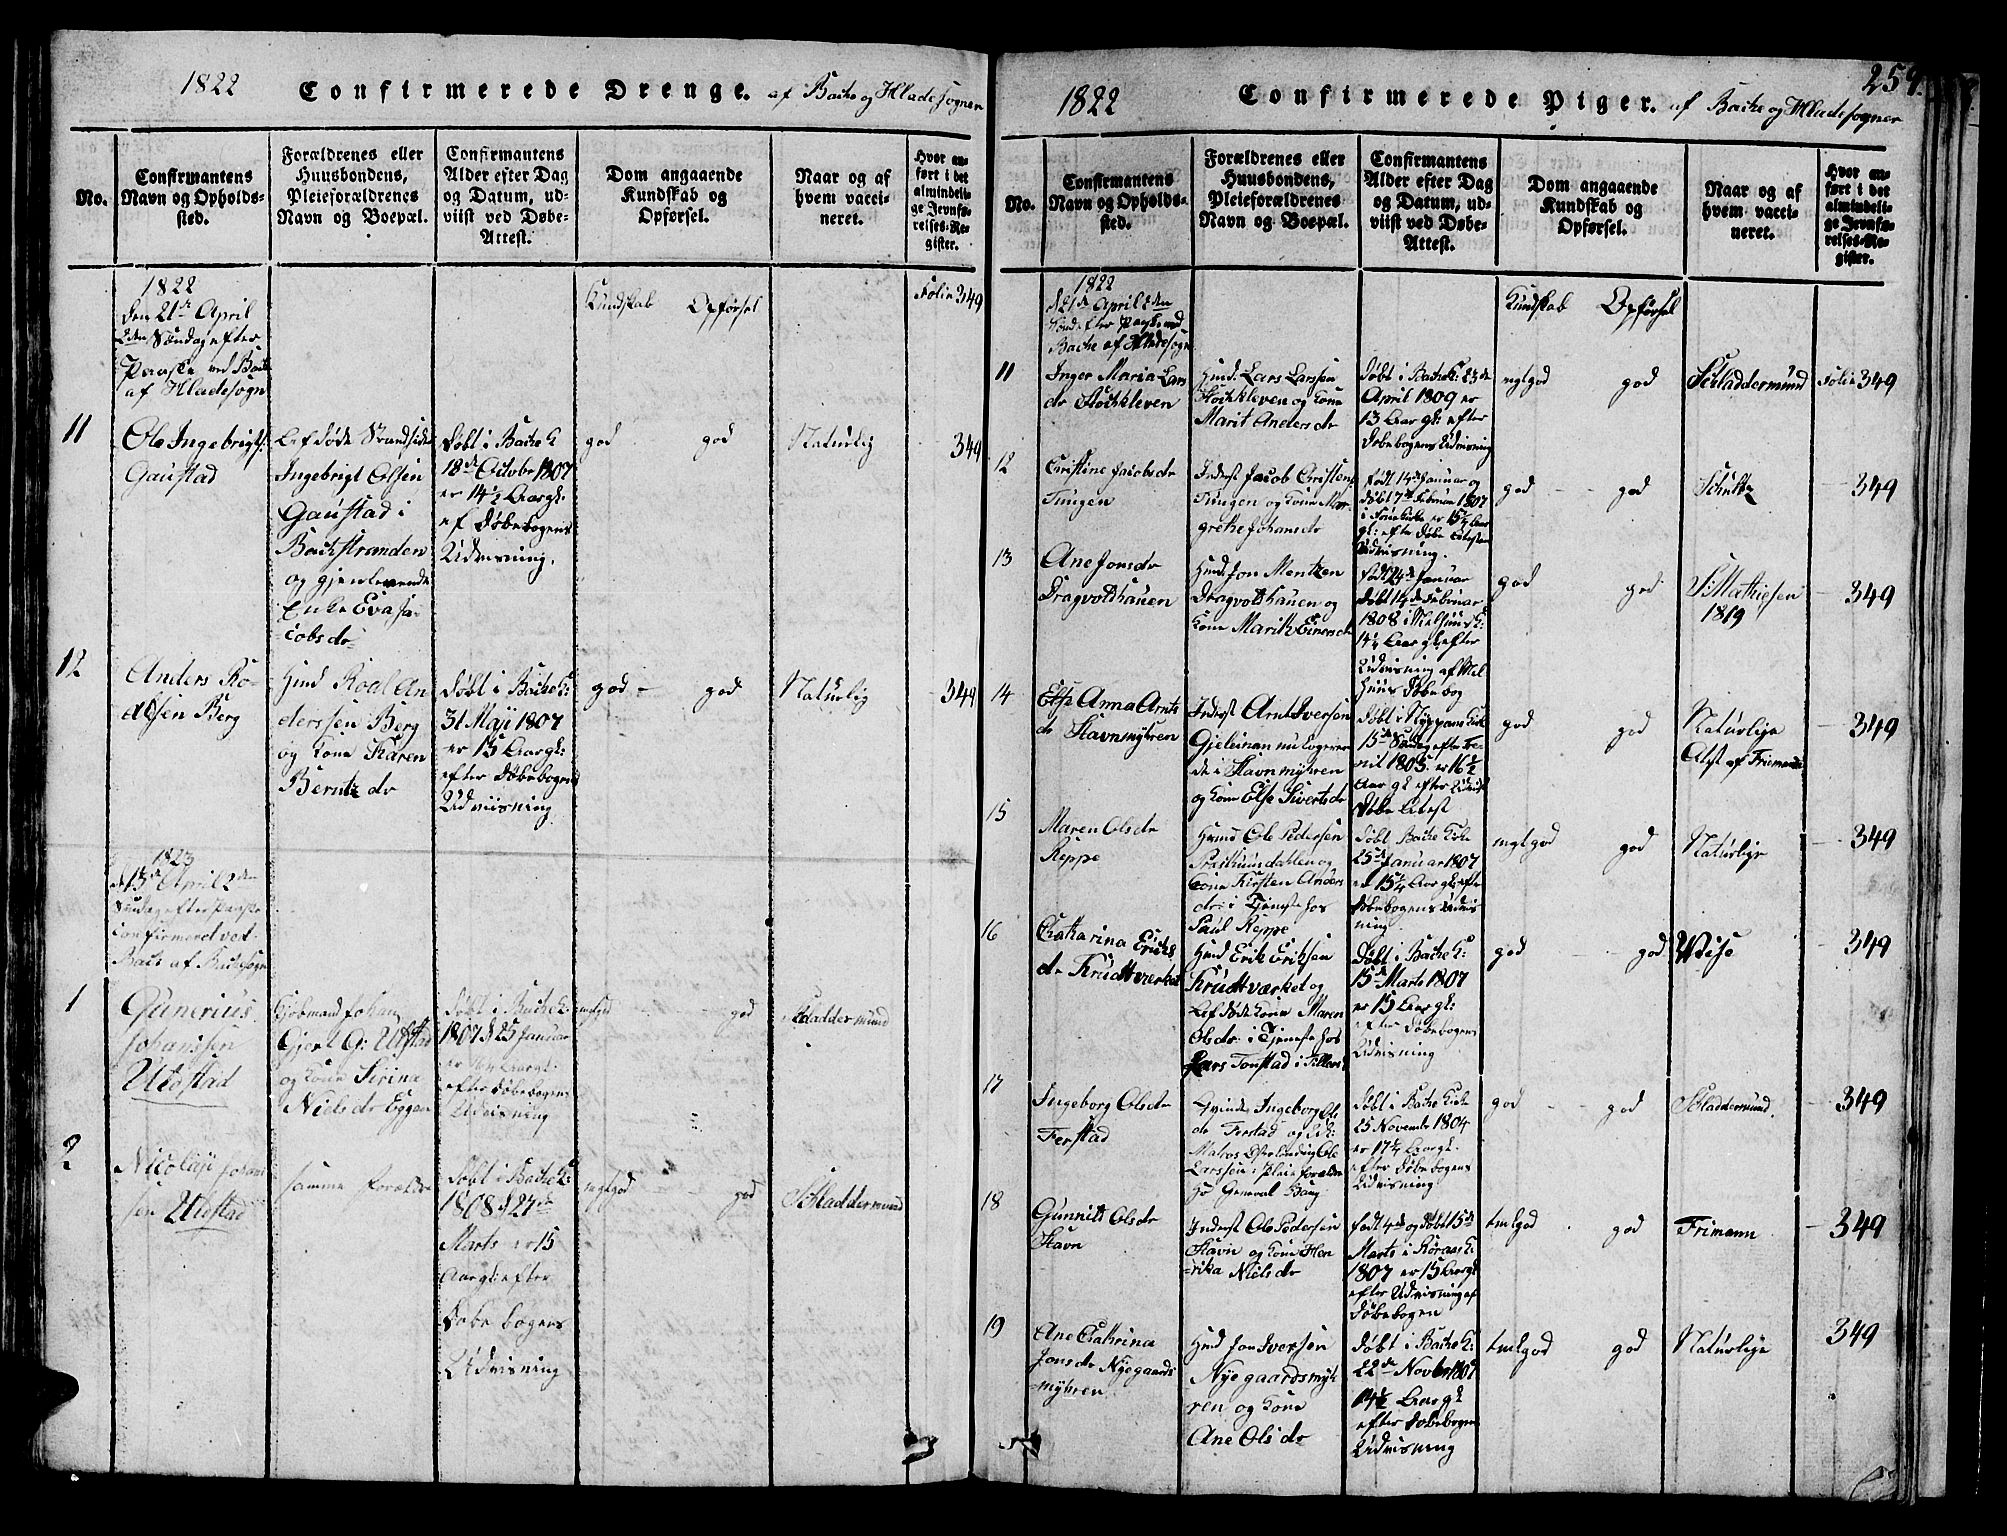 1822 Confirmerede Drenge. af Bache og Hladesogner
No.
Confirmantens
Navn og Opholds-
sted.
Forældrenes eller
Huusbondens,
Pleieforældrenes
Navn og Boepæl.
Confirmantens
Alder efter Dag
og Datum, ud-
viist ved Døbe-
Attest.
Dom angaaende
Kundskab og
Opførsel.
Naar og af
hvem vacci-
neret.
Hvor an-
ført i det
almindeli-
ge Jevnfø-
relses-Re-
gister.
1822
den 21de April
2den Søndag efter
Paaske ved Bache
af Hladesogn
Kundskab Opførsel
Folio 349
11
Ole Ingebrigts:
Gaustad
Lef døde Strandsidder
Ingebrigt Olsen
Gaustad i
Bachstranden
og gjenlevende
Enke Eva Ja-
cobsdr
døbt i Bache K
18de Octobr 1807
er 14½ Aar gl:
ef Døbebogens
Udvisning.
god god
Naturlig
349
12
Anders Ro-
alsen Berg
Hmd Roal An
derssen Berg
og Kone Karen
Berntz dr
døbt i Bache K:
31 Maji 1807
er 15 Aar gl:
efter Døbebogens
Udviisning
god god
Naturlig
349
1823
d 13de April 2den
Søndag efter Paaske
confirmeret ved
Bache af Bachesogn
1
Gunerius
Johanssen
Udstad
Kjøbmand Johan
Gjert G: Udstad
og Kone Sirina
Nielsdr Eggen
Døbt i Bache K:
1807 d 25 Januar
er Aar gl:
efter Døbebogens
Udvisning
megod god
Skladdermund
2
Nicolaye Johans
sen Udstad
samme Forældre
Døbt i Bache K:
1808 d 27de
Marts er 15
Aar gl: efter
Døbe bogens
Udvisning
mgl god god
Skladdermund
1822 Confirmerede Piger. af Bache og Hladesogner
259.
No.
Confirmantens
Navn og Opholds-
sted.
Forældrenes eller
Huusbondens,
Pleieforældrenes
Navn og Boepæl.
Confirmantens
Alder efter Dag
og Datum, ud-
viist ved Døbe-
Attest.
Dom angaaende
Kundskab og
Opførsel.
Naar og af
hvem vacci-
neret.
Hvor an-
ført i det
almindeli-
ge Jevnfø-
relses-Re-
gister.
1822
d 21de April 2den
Sønd efter Paaske ved
Bache af Hladesogn
Kundskab Opførsel
11
Inger Maria Lars
dr Stockleven
Hmd: Lars Larssen
Stockkleven og Kone
Marit Anders dr
døbt i Bache K: 23de
April 1809 er
13 Aar gl: efter
Døbebogens Udvisning
mgl god god
Skladdermund
Folio 349
12
Cristine Jacobsdr
Tungen
Inderst Jacob Cristens
Tungen og Kone Mar
grethe Johansdr
født 14de Januar og
døbt 17de Februar 1807
er 15¼ Aar
gl: efter Døbe Attestens
Udvisning.
god god
Schultz
349
13
Ane Jonsdr
Dragvoldhauen
Hmd: Jon Mentzen
Dragvoldhauen og
Kone Marith Einersdr
født 24de Januar
døbt 14de Februar
1808 i Melhuus K:
14¼ Aar gl efter
Udvisning af Mel
Huus Døbebog
god god
S: Mathiesen
1819
349
14
Else Anna Arnts
dr Stavnmyhren
Inderst Arnt Iversen
Gjeleinan nu logeren
de i Stavnmyhren
og Kone Else Sivertsdr
døbt i
15de Søndag efter Tre-
nit 1805 er 16½
Aar gl efter
Døbe Attest
god god
Naturlige
Atst af Frimann
349
15
Maren Olsdr
Reppe
Hmd Ole Pedersen
Presthuusdahlen og
Kone Kirsten Anders
dr: i Tjeneste hos
Paul Reppe
døbt Bache Kirke
25de Januar 1807
er 15¼ Aar gl: efter
Døbebogens Udvis
ning.
mgl god god
Naturlige
349
16
Catharina Erichs
dr Krudtværket
Hmd Erik Eriksen
Krudtværket og
Lef døde Kone Maren
Olsdr i Tjeneste hos
Lars Tonstad i Tiller
Døbt i Bache K:
15de Marts 1807
er 15 Aar gl:
efter Døbebogens
Udvisning
god god
Weise
349
17
Ingeborg Olsdr
Ferstad
Qvinde Ingeborg Ole
dr Ferstad og
Matros Ole
Larssen i Pleie forældre
ho General Bang
Døbt i Bache Kirke
25 November 1804
er 17½ Aar gl:
efter Døbebogens
Udvisning
god god
Skladdermund.
349
18
Gunnild Olsdr
Stavn
Inderst Ole Pedersen
Stavn og Kone Hen
-rika Nielsdr
født 4de og døbt 15de
Marts i Røraas K:
1807 er 15 Aar gl
efter Udvisning af
Døbebogen
tml god god
Frimann
349
19
Ane Cathrina
Jonsdr Nyegaards
-myhren
Hmd Jon Iversen
Nye gaardsmyh
ren og Kone
Ane Olsdr
Døbt i Bache K:
22de Novbr 1807
14½ Aar gl
efter Døbebogens
Udvisning
tml god god
Naturlige
349